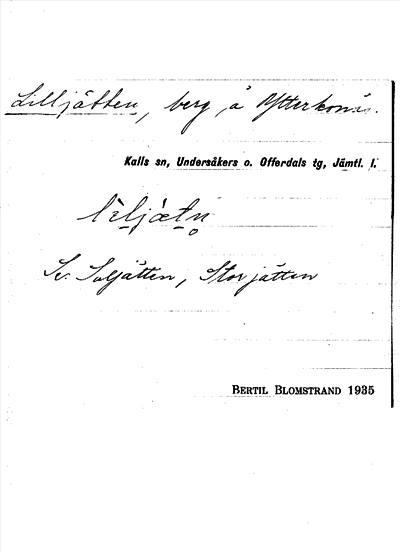 Lilljätten, berg, å Ytterkonäs.
Kalls sn, Undersåkers o. Offerdals tg, Jämtl. l.
Se. Soljätten, Storjätten
BERTIL BLOMSTRAND 1935